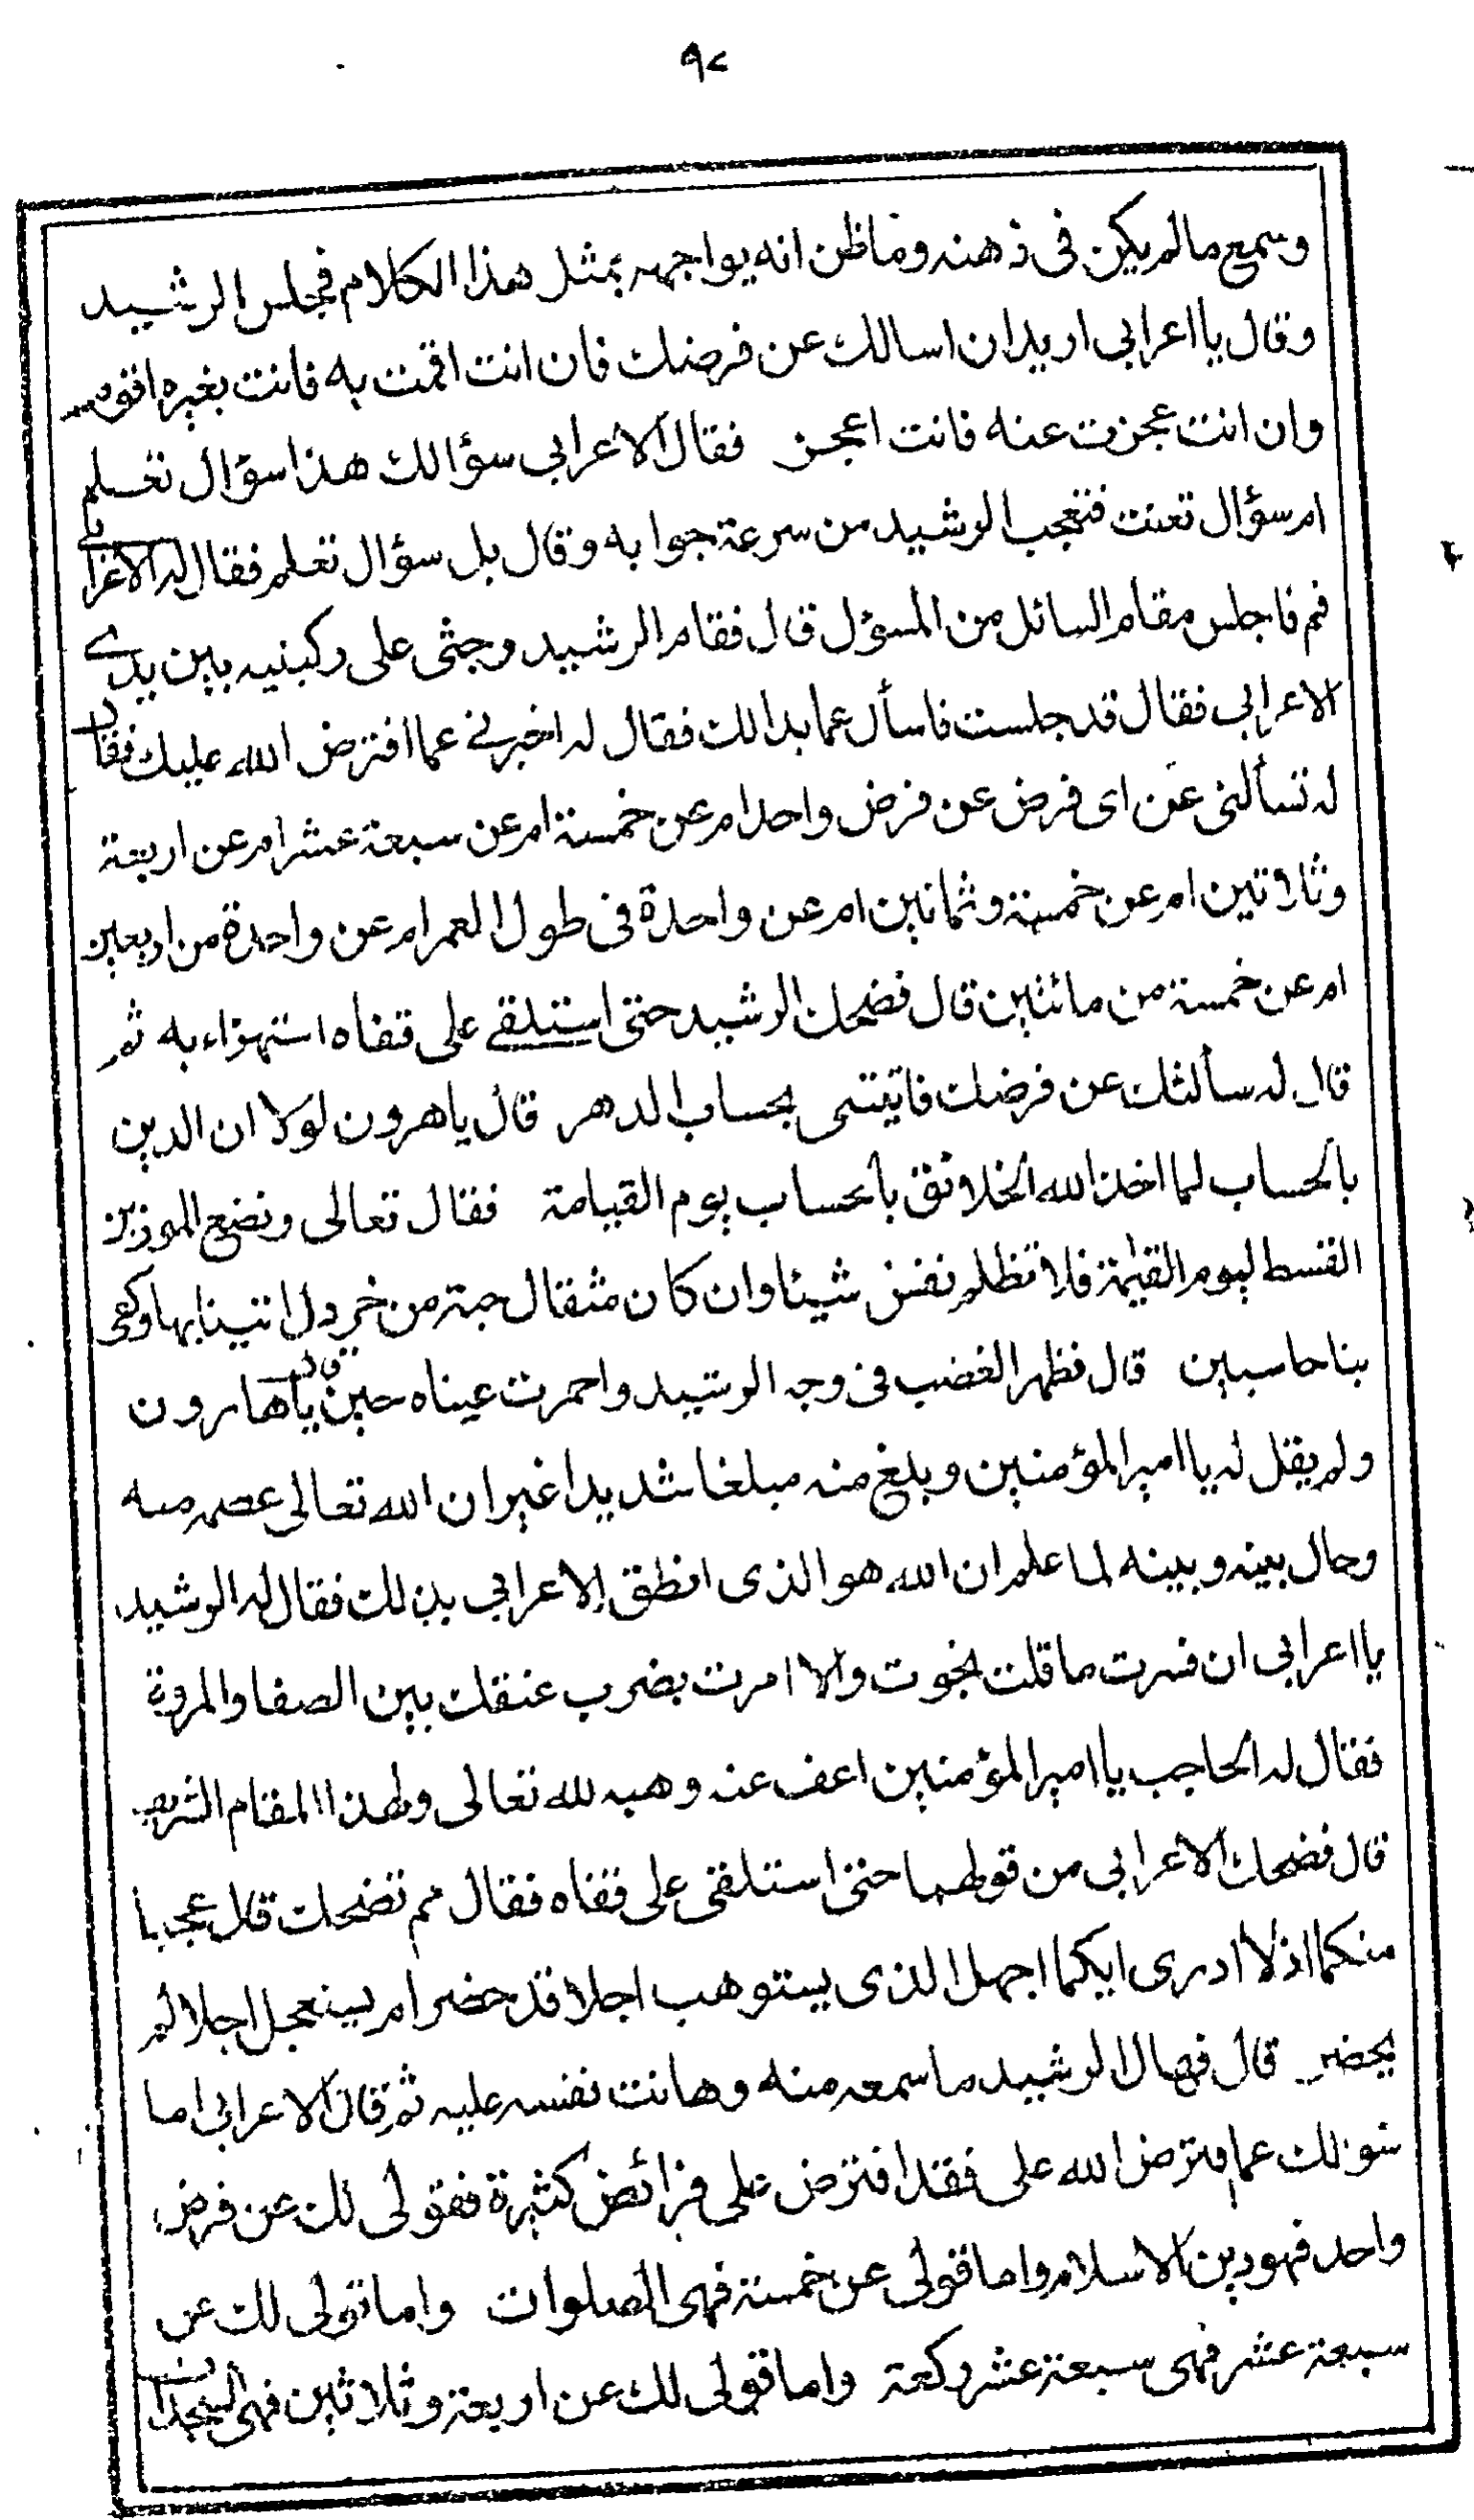 ٩٧
وسمع مالم يكن فى ذهنه وما ظن انه يواجهه بمثل هذا الكلام فجلس الرشيد
وقال يا اعرابي اريد ان اسالك عن فرضك فان انت اقمت به فانت بغيره اقوم
وان انت عجزت عنه فانت اعجز فقال الاعرابي سؤالك هذا سؤال تعلم
ام سؤال تعنت فتعجب الرشيد من سرعة جوابه وقال بل سؤال تعلم فقال له الاعرابي
قم فاجلس مقام السائل من المسؤل قال فقام الرشيد وجثى على ركبتيه بين يدي
الاعرابي فقال قد جلست فاسأل عما بدالك فقال له اخبرني عما افترض الله عليك فقال
له تسألنى عن اى فرض عن فرض واحد ام عن خمسة ام عن سبعة عشر ام عن اربعة
وثلاثين ام عن خمسة وثمانين ام عن واحدة فى طول العمر ام عن واحدة من اربعين
ام عن خمسة من مائتين قال فضحك الرشيد حتى استلقى على قفاه استهزاء به ثم
قال له سألتك عن فرضك فاتيتنى بحساب الدهر قال يا هرون لولا ان الدين
بالحساب لما اخذ الله الخلائق بالحساب يوم القيامة فقال تعالى ونضع الموزين
القسط ليوم القيمة فلا تظلم نفس شيئا وان كان مثقال حبة من خردل اتينا بها وكفى
بنا حاسبين قال فظهر الغضب فى وجه الرشيد واحمرت عيناه حين قال يا هارون
ولم يقل له يا امير المؤمنين وبلغ منه مبلغا شديدا غير ان الله تعالى عصمه منه
وحال بينه وبينه لما علم ان الله هو الذى انطق الاعرابي بذلك فقال له الرشيد
يا اعرابي ان فسرت ما قلت نجوت والا امرت بضرب عنقك بين الصفا والمروة
فقال له الحاجب يا امير المؤمنين اعف عنه وهبه لله تعالى ولهذا المقام الشريف
قال فضحك الاعرابي من قولهما حتى استلقى على قفاه فقال مم تضحك قال عجبا
منكما اذ لا ادرى ايكما اجهل الذى يستوهب اجلا قد حضر ام يستعجل اجلا لم
يحضر قال فهال الرشيد ما سمعه منه وهانت نفسه عليه ثم قال الاعرابي اما
سؤالك عما افترض الله على فقد افترض على فرائض كثيرة فقولى لك عن فرض
واحد فهو دين الاسلام واما قولى عن خمسة فهى الصلوات واما قولى لك عن
سبعة عشر فهى سبعة عشر ركعة واما قولى لك عن اربعة وثلاثين فهى السجدات